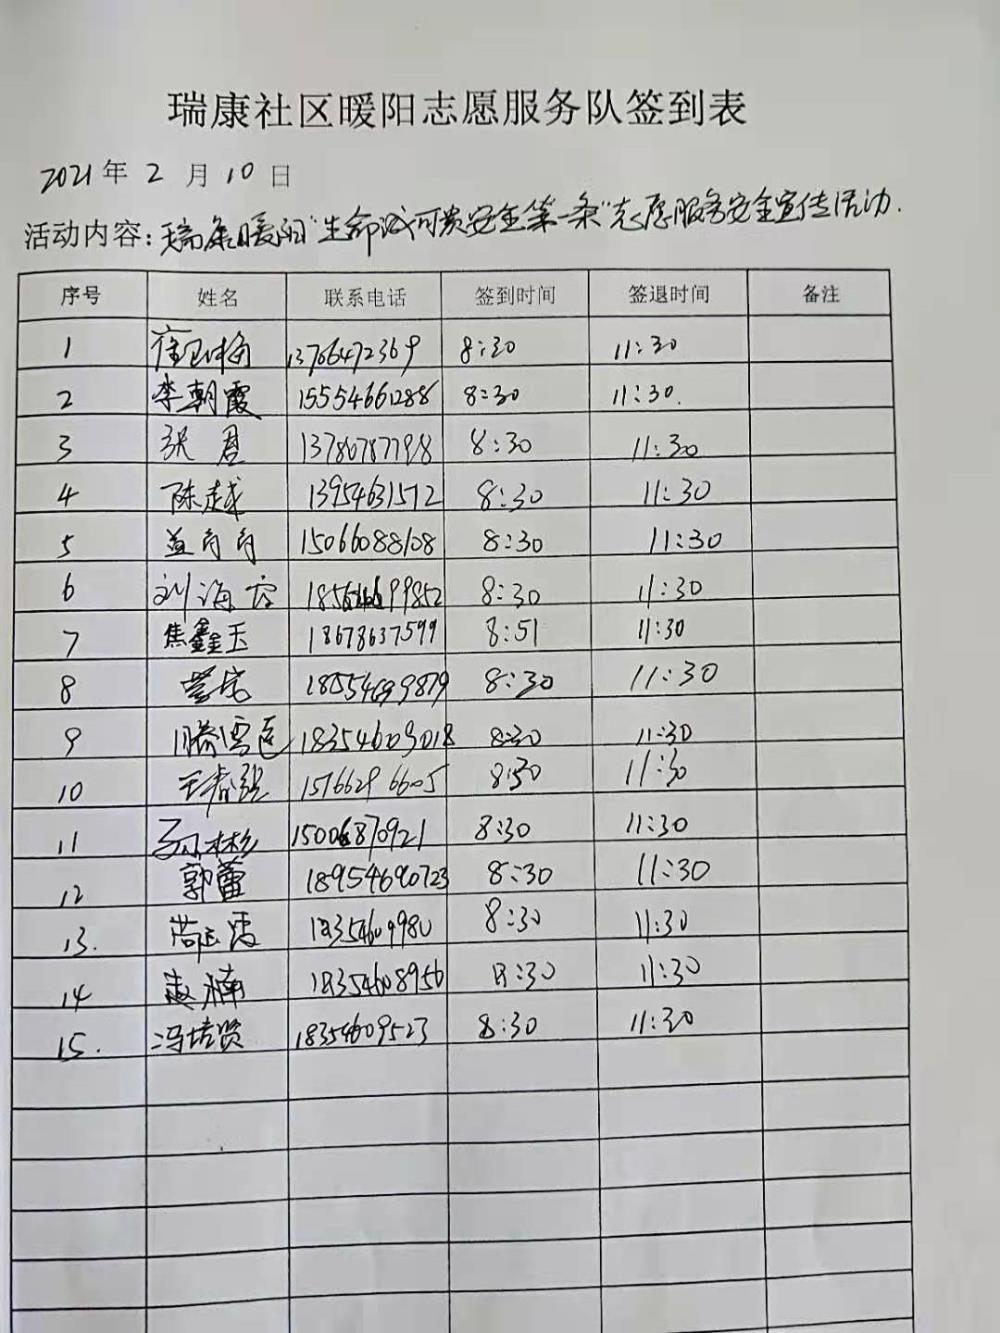 瑞康社区暖阳志愿服务队签到表
2021年 2 月 10 日
活动内容：瑞康暖阳"生命诚可贵安全第一条"志愿服务安全宣传活动.
序号 姓名 联系电话 签到时间 签退时间 备注
1 13706472369 8:30 11:30
2 李朝霞 15554661288 8:30 11:30.
3 张君 13786787798 8:30 11:30
4 陈越 13954631572 8:30 11:30
5 15066088108 8:30 11:30
6 刘海 8:30 11:30
7 焦鑫玉 18678637599 8:51 11:30
8 18554699879 8:30 11:30
9 18354603018 8:30 11:30
10 王春强 15766296605 8:30 11:30
11 孙林杉 15006870921 8:30 11:30
12 郭蕾 18954690723 8:30 11:30
13. 8:30 11:30
14 赵楠 18354608956 8:30 11:30
15. 冯培贤 18354609523 8:30 11:30